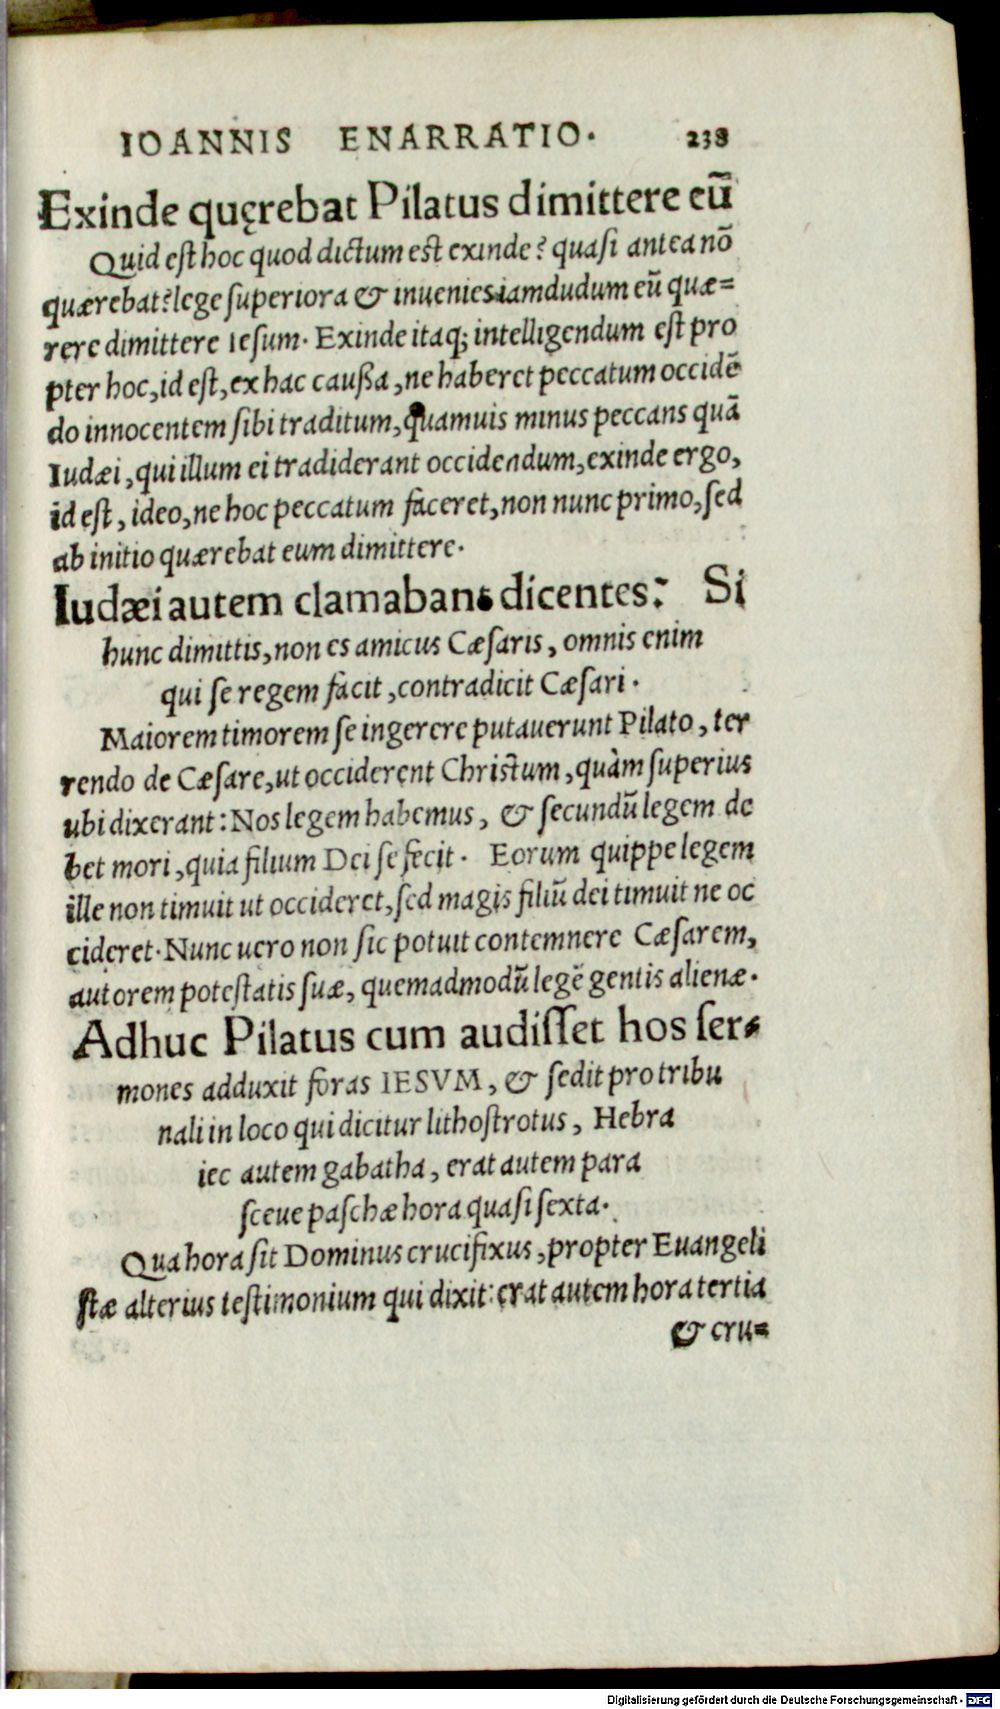 IOANNIS ENARRATIO. 238
Exinde quęrebat Pilatus dimittere eū
Quid est hoc quod dictum est exinde? quasi antea nō
quærebat? lege superiora & inuenies iamdudum eū quæ=
rere dimittere Iesum. Exinde itaq; intelligendum est pro
pter hoc, id est, ex hac caußa, ne haberet peccatum occidē
do innocentem sibi traditum, quamuis minus peccans quā
Iudæi, qui illum ei tradiderant occidendum, exinde ergo,
id est, ideo, ne hoc peccatum faceret, non nunc primo, sed
ab initio quærebat eum dimittere.
Iudæi autem clamabant dicentes: Si
hunc dimittis, non es amicus Cæsaris, omnis enim
qui se regem facit, contradicit Cæsari.
Maiorem timorem se ingerere putauerunt Pilato, ter
rendo de Cæsare, ut occiderent Christum, quàm superius
ubi dixerant: Nos legem habemus, & secundū legem de
bet mori, quia filium Dei se fecit. Eorum quippe legem
ille non timuit ut occideret, sed magis filiū dei timuit ne oc
cideret. Nunc uero non sic potuit contemnere Cæsarem,
autorem potestatis suæ, quemadmodū legē gentis alienæ.
Adhuc Pilatus cum audisset hos ser=
mones adduxit foras IESVM, & sedit pro tribu
nali in loco qui dicitur lithostrotus, Hebra
iec autem gabatha, erat autem para
sceue paschæ hora quasi sexta.
Qua hora sit Dominus crucifixus, propter Euangeli
stæ alterius testimonium qui dixit: erat autem hora tertia
& cru=
Digitalisierung gefördert durch die Deutsche Forschungsgemeinschaft - DFG